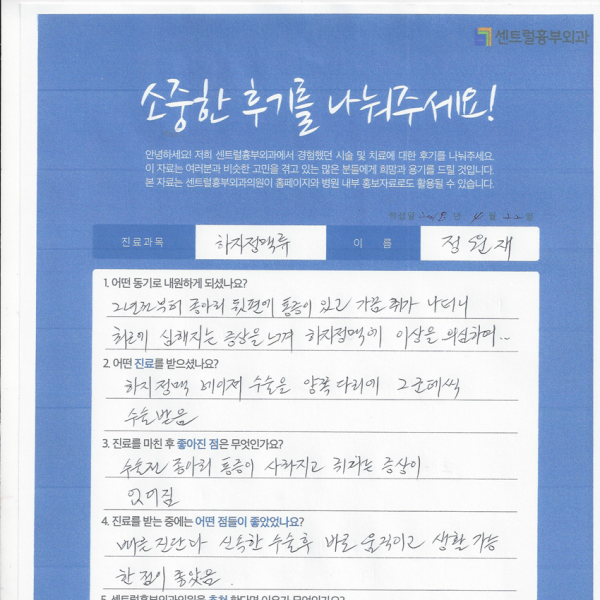 센트럴흉부외과
소중한 후기를 나눠주세요!
안녕하세요! 저희 센트럴흉부외과에서 경험했던 시술 및 치료에 대한 후기를 나눠주세요.
이 자료는 여러분과 비슷한 고민을 겪고 있는 많은 분들에게 희망과 용기를 드릴 것입니다.
본 자료는 센트럴흉부외과의원이 홈페이지와 병원 내부 홍보자료로도 활용될 수 있습니다.
작성일 2018 년 4 월 22 일
진료과목 하지정맥류 이 름 정원재
1. 어떤 동기로 내원하게 되셨나요?
2년전부터 종아리 뒷편에 통증이 있고 가끔 쥐가 나더니
최근에 심해지는 증상을 느껴 하지정맥에 이상을 의심하며...
2. 어떤 진료를 받으셨나요?
하지정맥 레이저 수술을 양쪽다리에 2군데씩
수술받음
3. 진료를 마친 후 좋아진 점은 무엇인가요?
수술전 종아리 통증이 사라지고 쥐나는 증상이
없어짐
4. 진료를 받는 중에는 어떤 점들이 좋았었나요?
빠른 진단과 신속한 수술후 바로 움직이고 생활 가능
한 점이 좋았음.
5. 센트럴흉부외과의원을 추천한다면 이유가 무엇인가요?